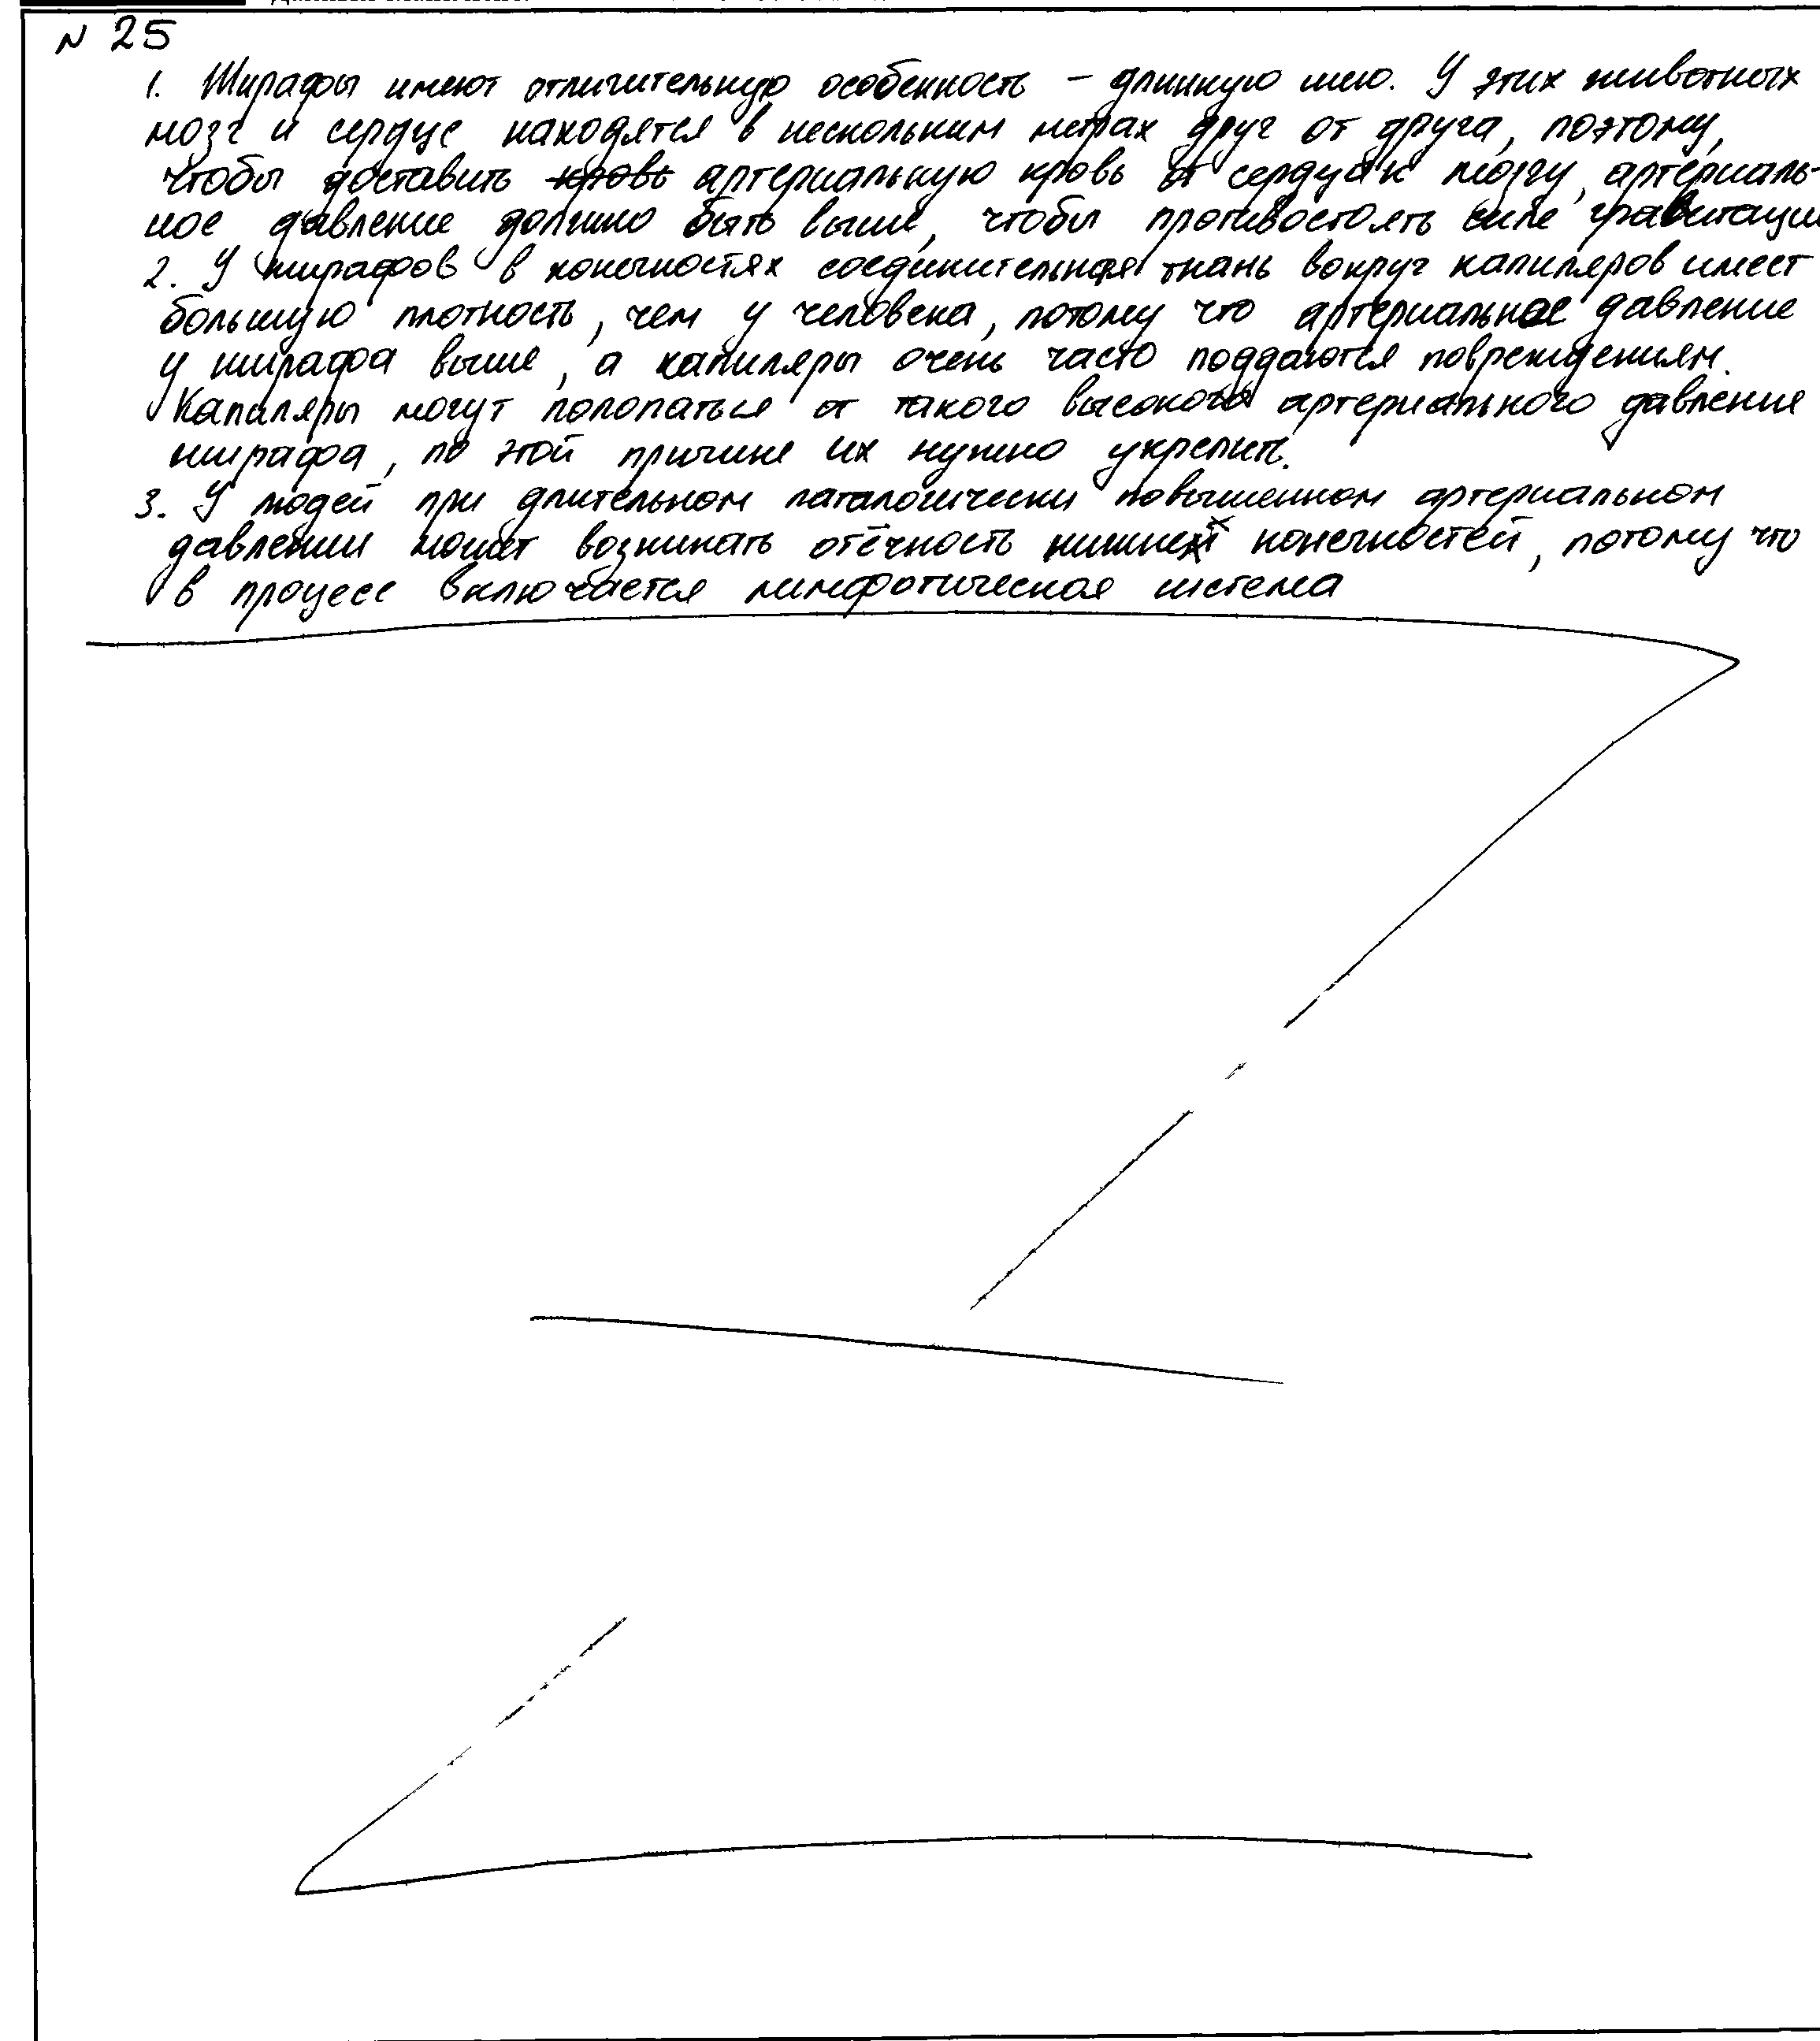 N 25
1. Жирафы имеют отличительную особенность – длинную шею. У этих животных
мозг и сердце находятся в нескольким метрах друг от друга, поэтому,
чтобы доставить кровь артериальную кровь от сердца к мозгу, артериаль-
ное давление должно быть выше, чтобы противостоять силе гравитации
2. У жирафов в конечностях соединительная ткань вокруг капиляров имеет
большую плотность, чем у человека, потому что артериальное давление
у жирафа выше, а капиляры очень часто поддаются повреждениям.
Капиляры могут полопаться от такого высокого артериального давление
жирафа, по этой причине их нужно укрепить.
3. У людей при длительном паталогически повышенном артериальном
давлении может возникать отёчность нижних конечностей, потому что
в процесс включается лимфотическая система